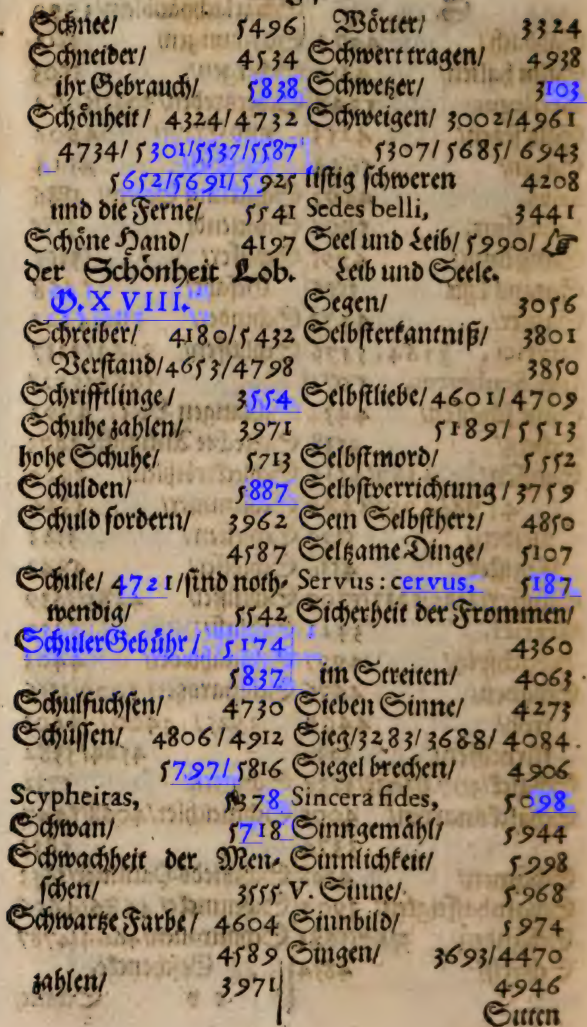 Schnee/ 5496
Schneider/ 4534
ihr Gebrauch/ 5838
Schönheit/ 4324/4732
4734/5301/5537/5587
5652/5691/5925
und die Ferne/ 5541
Schöne Hand/ 4197
der Schönheit Lob.
D. XVIII.
Schreiber/ 4180/5432
Verstand/4653/4798
Schrifftlinge/ 3554
Schuhe zahlen/ 3971
hohe Schuhe/ 5713
Schulden/ 5887
Schuld fordern/ 3962
4587
Schule/ 4721/sind noth-
wendig/ 5542
Schuler Gebühr/ 5174
5837
Schulfuchsen/ 4730
Schüssen/ 4806/4912
5797/5816
Scypheitas, 5378
Schwan/ 5718
Schwachheit der Men-
schen/ 3555
Schwartze Farbe/ 4604
4589
zahlen/ 3971
Wörter/ 3324
Schwert tragen/ 4938
Schwetzer/ 3103
Schweigen/ 3002/4961
5307/5685/6943
listig schweren 4208
Sedes belli, 3441
Seel und Leib/ 5990/ ☞
Leib und Seele.
Segen/ 3056
Selbsterkantniß/ 3801
3850
Selbstliebe/4601/4709
5189/5513
Selbstmord/ 5552
Selbstverrichtung/3759
Sein Selbstherz/ 4850
Seltzame Dinge/ 5107
Servus: cervus, 5187
Sicherheit der Frommen/
4360
im Streiten/ 4063
Sieben Sinne/ 4273
Sieg/3283/3688/4084.
Siegel brechen/ 4906
Sincera fides, 5098
Sinngemähl/ 5944
Sinnlichkeit/ 5998
V. Sinne/ 5968
Sinnbild/ 5974
Singen/ 3693/4470
4946
Sitten